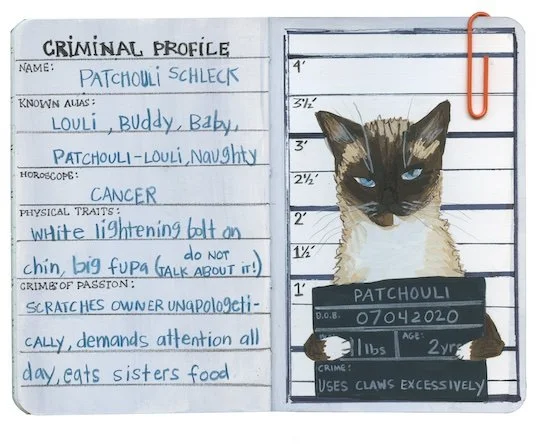 CRIMINAL PROFILE
NAME:
PATCHOULI SCHLECK
KNOWN ALIAS:
LOULI, BUddy, Baby,
PATCHOULI-LOULI, Naughty
HOROSCOPE:
CANCER
PHYSICAL TRAITS:
White lightening bolt on
chin, big fupa (do NOT TALK ABOUT iT!)
CRIMES OF PASSION:
SCRATCHES OWNER UNAPOLOGETI-
CALLY, demands attention all
day, eats sisters food
4'
3½'
3'
2½'
2'
1½'
1'
PATCHOULI
D.O.B. 07042020
11lbs AGE: 2yrs
CRIME:
USES CLAWS EXCESSIVELY